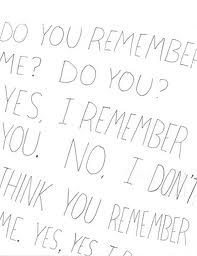 DO YOU REMEMBER
ME? DO YOU?
YES, I REMEMBER
YOU. NO, I DON'T
THINK YOU REMEMBER
ME. YES, YES I